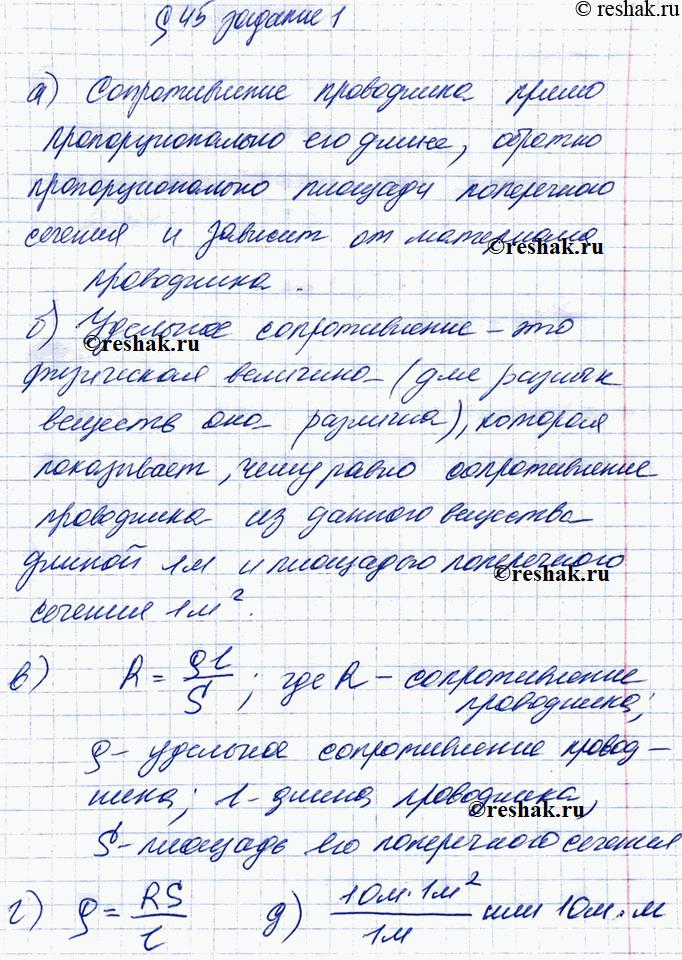 © reshak.ru
§ 45 задание 1
а) Сопротивление проводника прямо
пропорционально его длине, обратно
пропорционально площади поперечного
сечения и зависит от материала
©reshak.ru
проводника.
б) Удельное сопротивление – это
©reshak.ru
физическая величина (для разных
веществ она различна), которая
показывает, чему равно сопротивление
проводника из данного вещества
длиной 1м и площадью поперечного
©reshak.ru
сечения 1м².
в) R = ρl/S ; где R – сопротивление
проводника;
ρ – удельное сопротивление провод–
ника; l – длина проводника,
©reshak.ru
S – площадь его поперечного сечения
г) ρ = RS/l д) 1Ом·1м²/1м или 1Ом·м